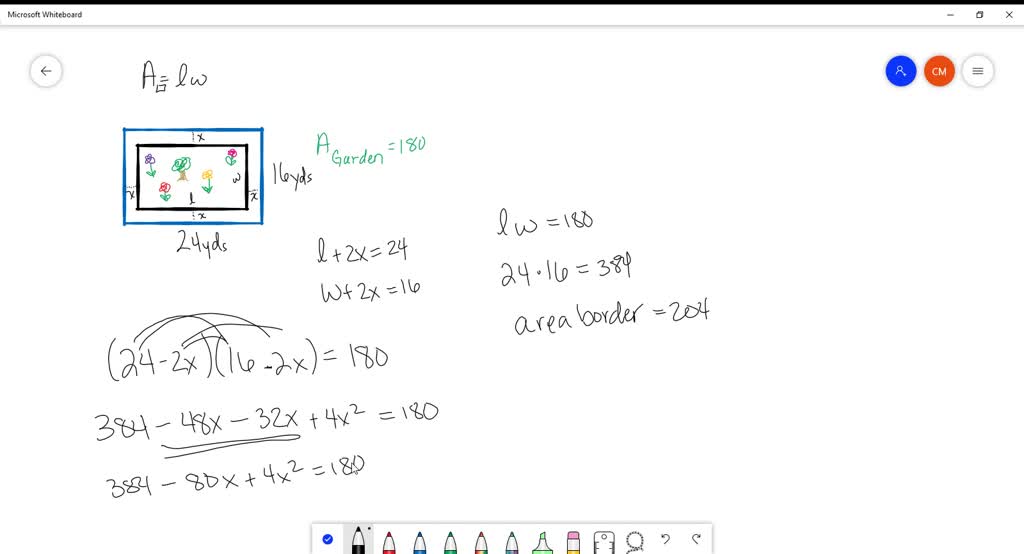 Microsoft Whiteboard
CM
A▭ = lw
x
x
w
x
l
x
16yds
24yds
A Garden = 180
l + 2x = 24
w + 2x = 16
lw = 180
24 · 16 = 384
area border = 204
(24 - 2x)(16 - 2x) = 180
384 - 48x - 32x + 4x² = 180
384 - 80x + 4x² = 180